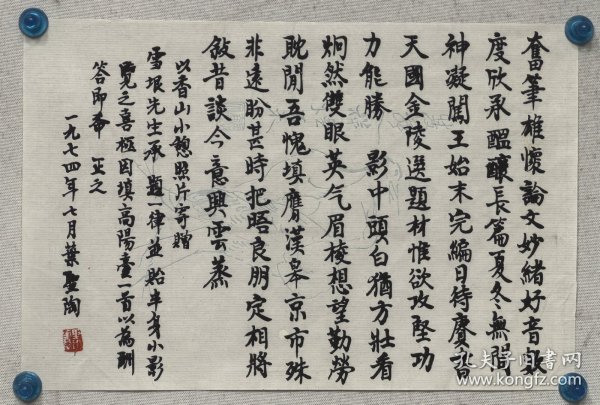 奮筆雄懷論文妙緒好音歡
度欣承醞釀長篇夏冬無間
神凝闖王始末完編日待賡
天國金陵選題材惟欲攻堅功
力能勝　影中頭白猶方壯看
炯然雙眼英气眉棱想望勤勞
耽閒吾愧填膺漢皋京市殊
非遠盼甚時把晤良朋定相將
敍昔談今意興雲蒸
以香山小憩照片寄贈
雪垠先生承　題一律並貽半身小影
覽之喜極因填高陽臺一首以為酬
答即希　正之
一九七四年七月葉聖陶
孔夫子旧书网
www.kongfz.com